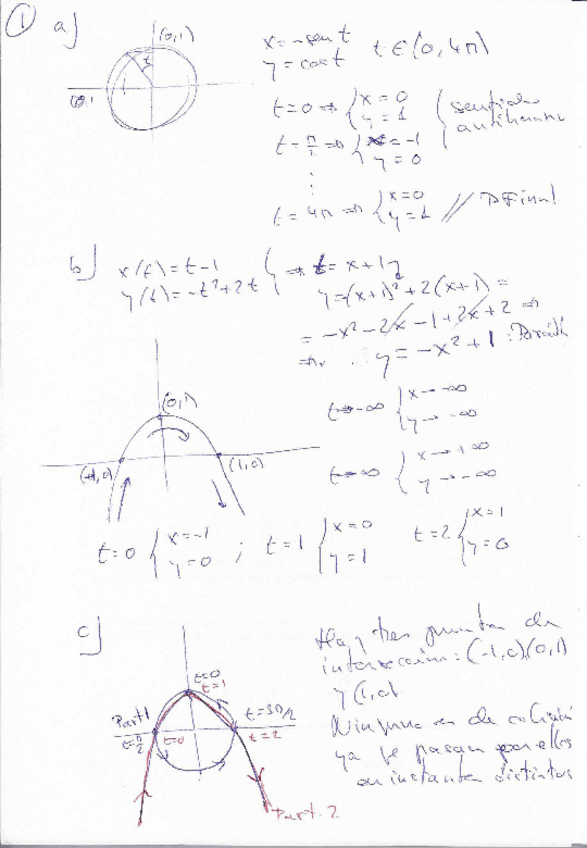 ① a)
(0,1)
t
x = -sen t
y = cos t
t ∈ (0, 4π)
t=0 ⇒ { x=0
y=1
sentido
antihorario
t=π/2 ⇒ { x=-1
y=0
⋮
t=4π ⇒ { x=0
y=1 // P Final
b) x(t)=t-1
y(t)=-t²+2t
⇒ t=x+1
y=-(x+1)²+2(x+1)=
=-x²-2x-1+2x+2 ⇒
⇒ y=-x²+1
(0,1)
(-1,0)
(1,0)
t→-∞ { x→-∞
y→-∞
t→∞ { x→+∞
y→-∞
t=0 { x=-1
y=0 ;
t=1 { x=0
y=1
t=2 { x=1
y=0
c)
t=0
t=1
Part 1
t=π/2
t=0
t=3π/2
t=2
Part. 2
Hay tres puntos de
intersección: (-1,0) (0,1)
y (1,0)
Ninguno es de colisión
ya q pasan por ellos
en instantes distintos